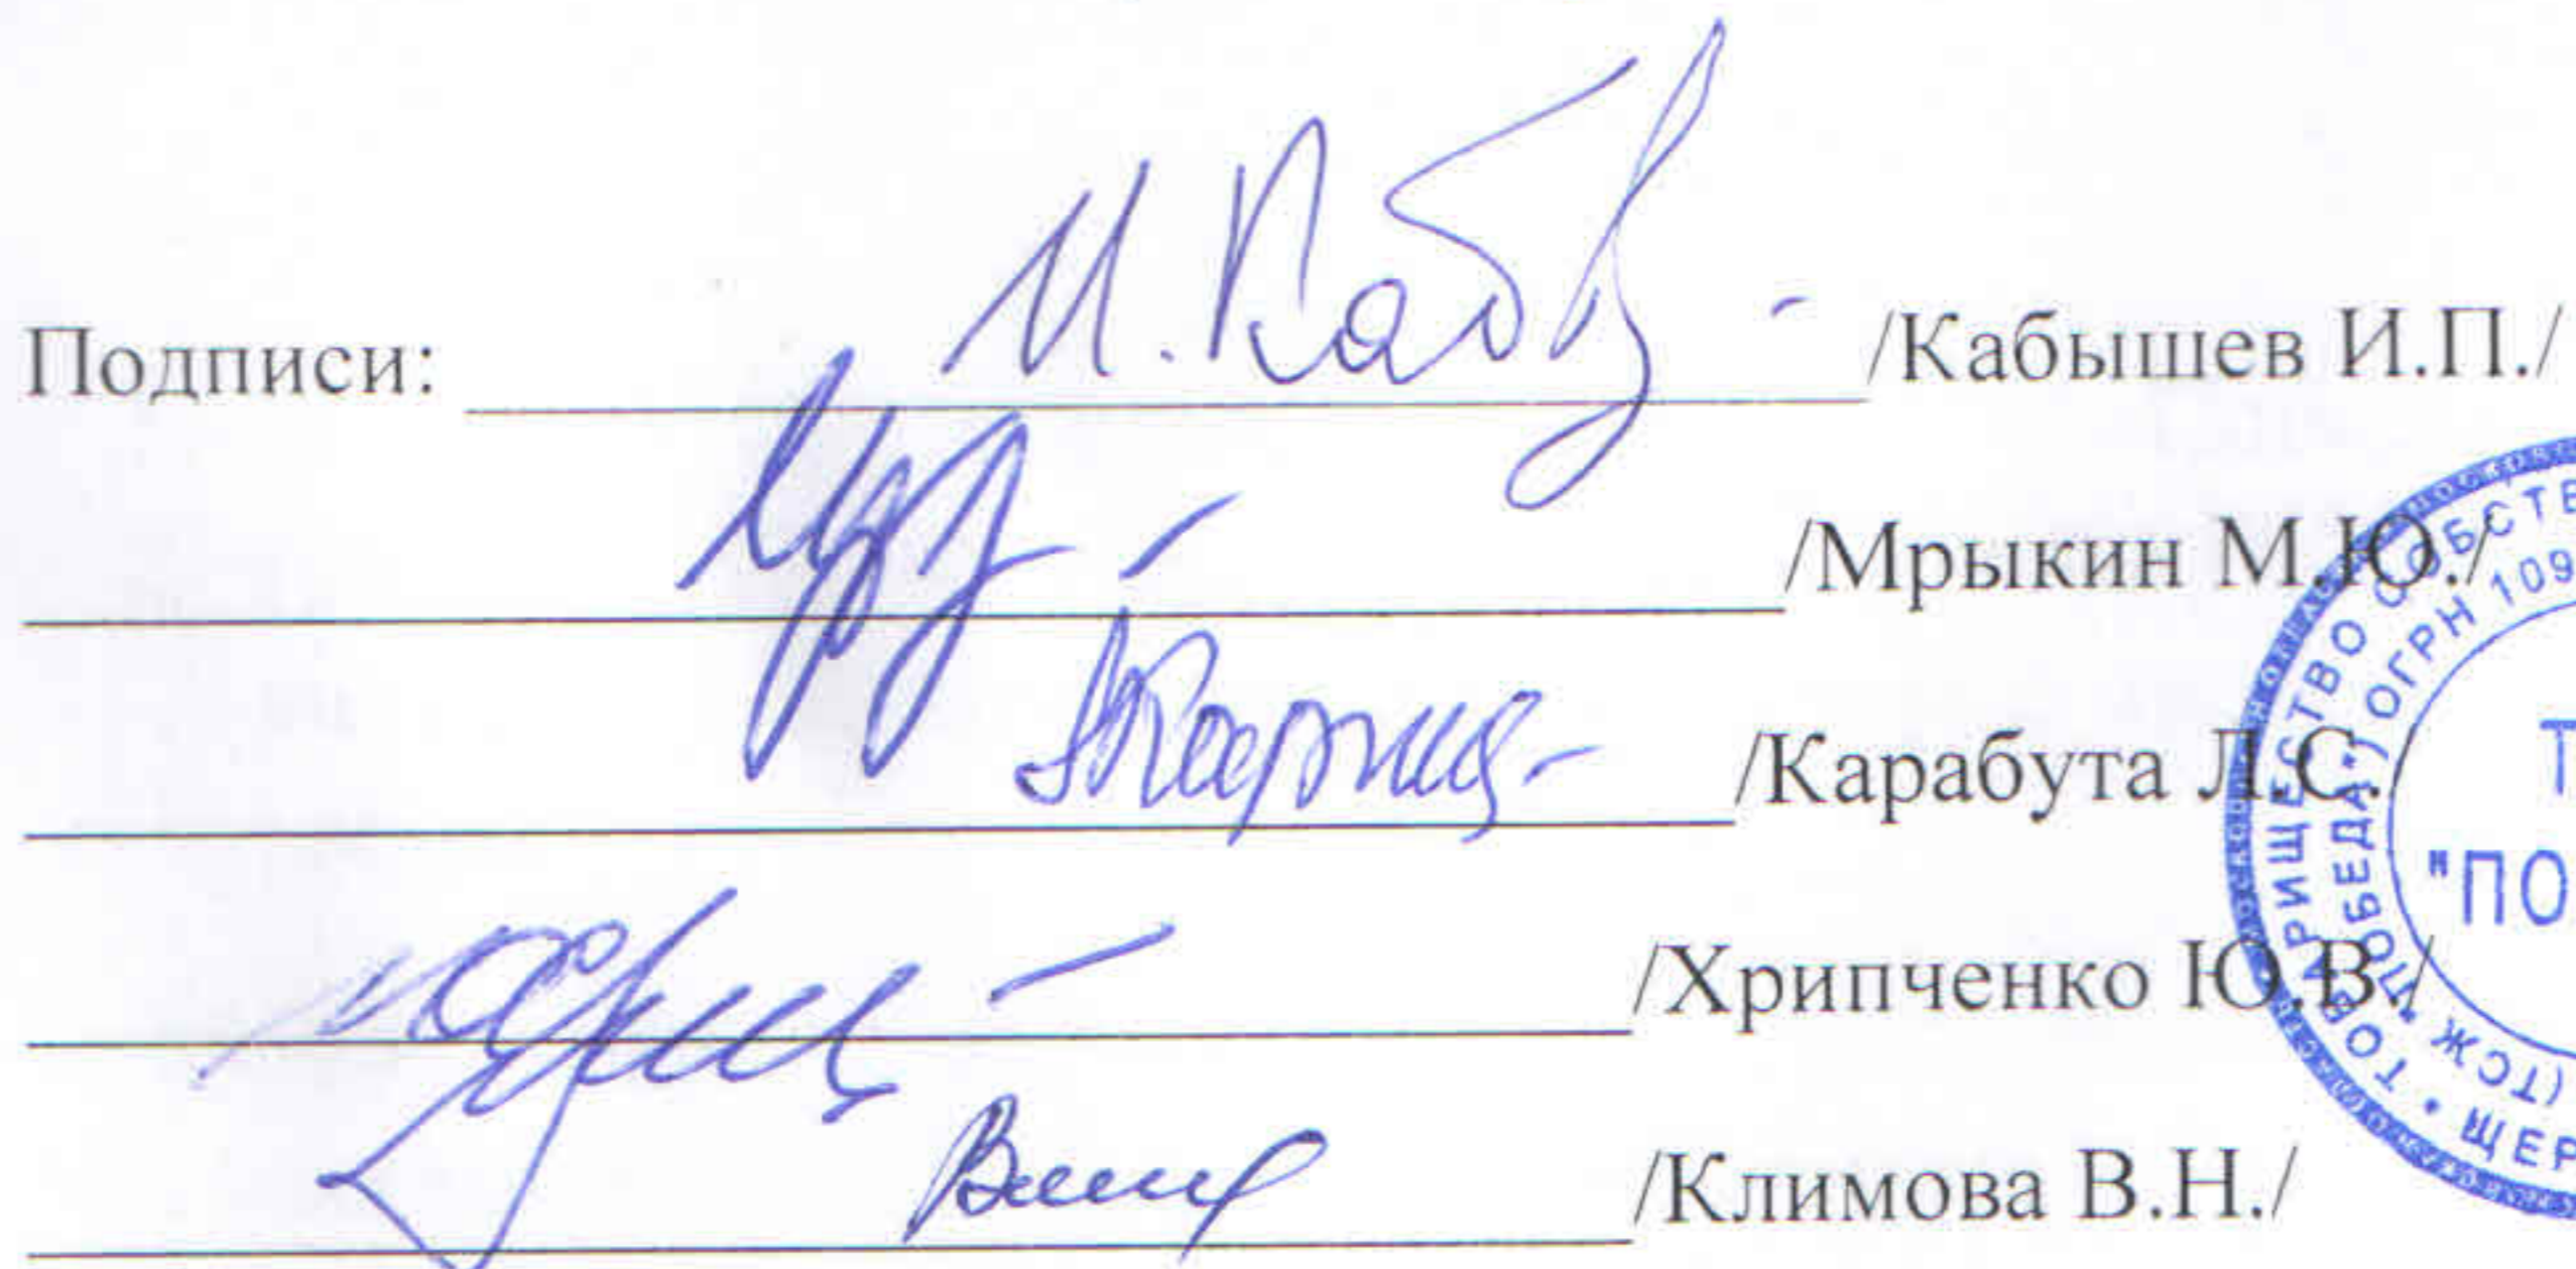 Подписи: И. Каб /Кабышев И.П./
/Мрыкин М.Ю./
/Карабута Л.С.
/Хрипченко Ю.В./
/Климова В.Н./
ТОВАРИЩЕСТВО СОБСТВ
(ТСЖ "ПОБЕДА") ОГРН 109
ЩЕР
Т
"ПО